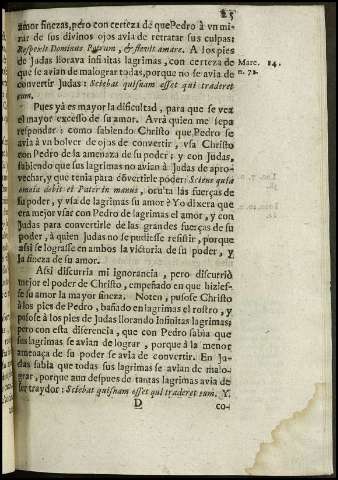 25
amor finezas, pero con certeza de que Pedro à vn mi-
rar de sus divinos ojos avia de retratar sus culpas:
Respexit Dominus Petrum, & flevit amare. A los pies
de Judas llorava infinitas lagrimas, con certeza de
que se avian de malograr todas, porque no se avia de
convertir Judas: Sciebat quisnam esset qui traderet
eum.
Marc. 14.
n. 72.
Pues yà es mayor la dificultad, para que se vea
el mayor excesso de su amor. Avrà quien me sepa
responder: como sabiendo Christo que Pedro se
avia à vn bolver de ojos de convertir, vsa Christo
con Pedro de la amenaza de su poder; y con Judas,
sabiendo que sus lagrimas no avian à Judas de apro-
vechar, y que tenia para cõvertirle poder: Sciens quia
omnia dedit ei Pater in manus, oculta las fuerças de
su poder, y vsa de lagrimas su amor? Yo dixera que
era mejor vsar con Pedro de lagrimas el amor, y con
Judas para convertirle de las grandes fuerças de su
poder, à quien Judas no se pudiesse resistir, porque
assi se lograsse en ambos la victoria de su poder, y
la fineza de su amor.
Assi discurria mi ignorancia, pero discurriò
mejor el poder de Christo, empeñado en que hizies-
se su amor la mayor fineza. Noten, pusose Christo
à los pies de Pedro, bañado en lagrimas el rostro, y
pusose à los pies de Judas llorando infinitas lagrimas;
pero con esta diferencia, que con Pedro sabia que
sus lagrimas se avian de lograr, porque à la menor
amenaça de su poder se avia de convertir. En Ju-
das sabia que todas sus lagrimas se avian de malo-
grar, porque aun despues de tantas lagrimas avia de
ser traydor: Sciebat quisnam esset qui traderet eum. Y
D
co-